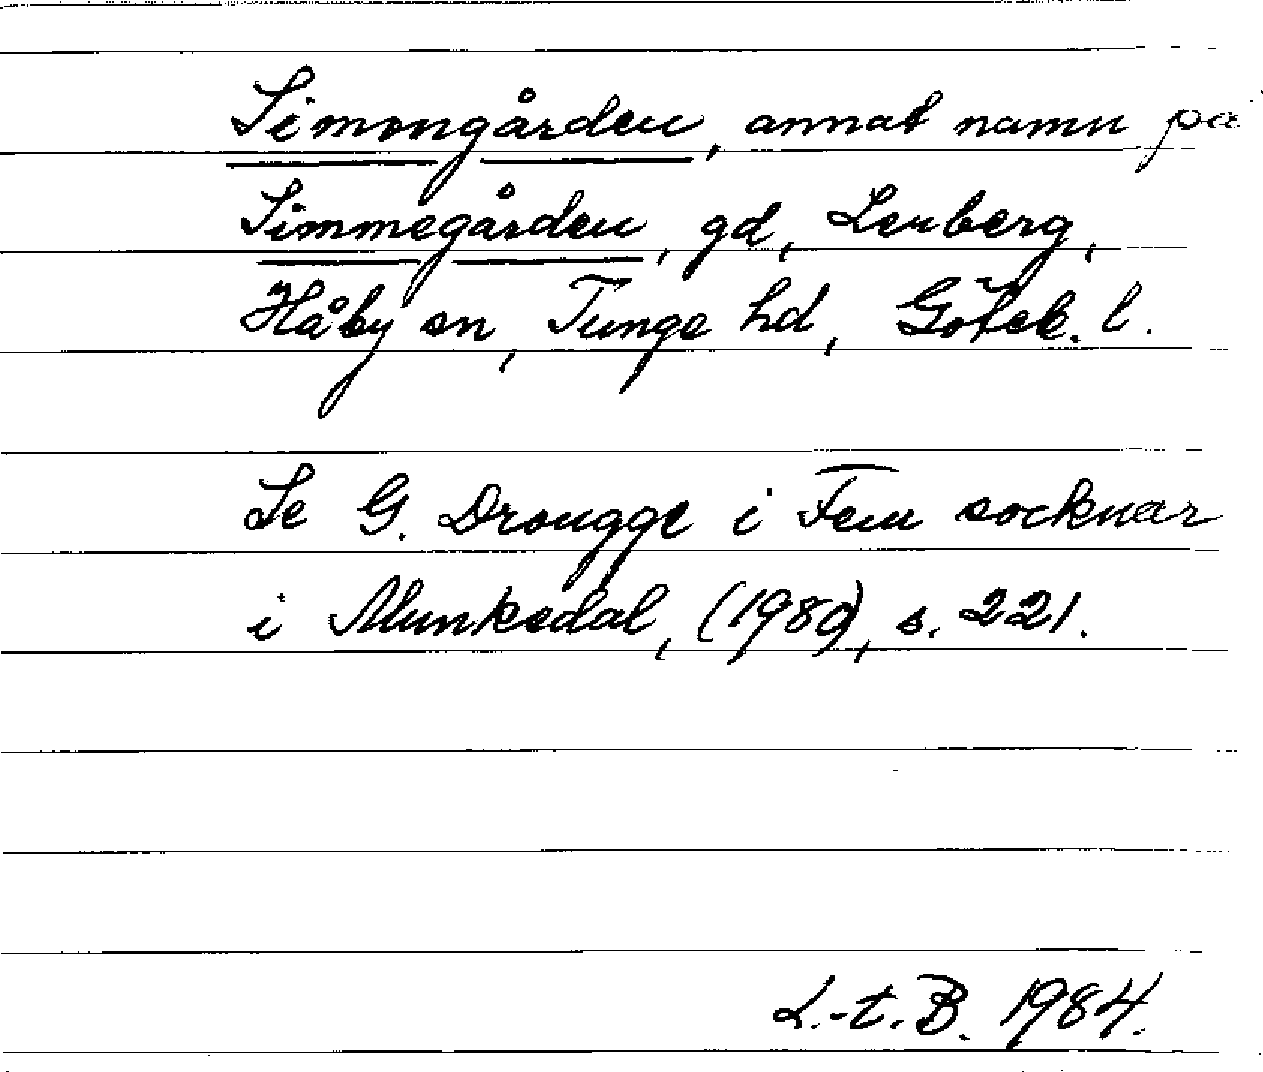 Simongården, annat namn på
Simmegården, gd, Lerberg,
Håby sn, Tunge hd, Göteb. l.
Se G. Drougge i Fem socknar
i Munkedal, (1980), s. 221.
L.-t. B. 1984.